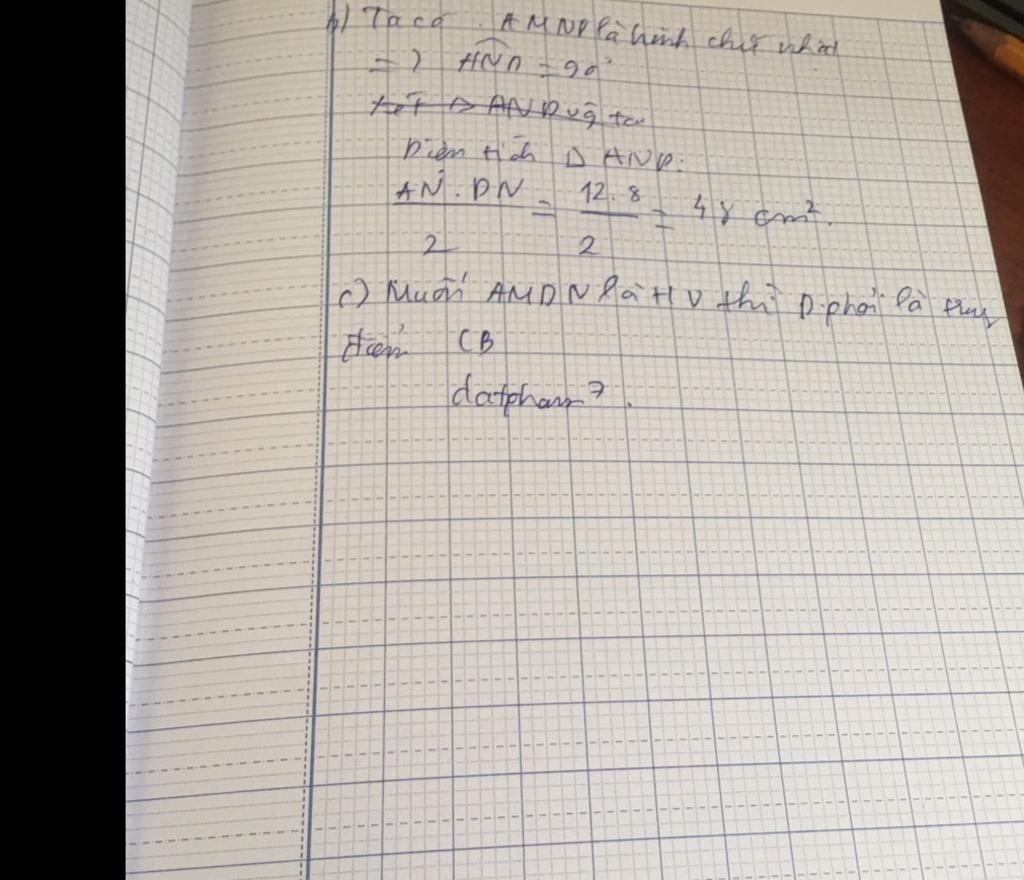 b) Ta có AMND là hình chữ nhật
=) AND = 90°
xét Δ AND vg tại
Diện tích Δ AND:
AN . DN / 2 = 12.8 / 2 = 48 cm².
c) Muốn AMDN là HV thì D phải là trung
điểm CB
datpham7.